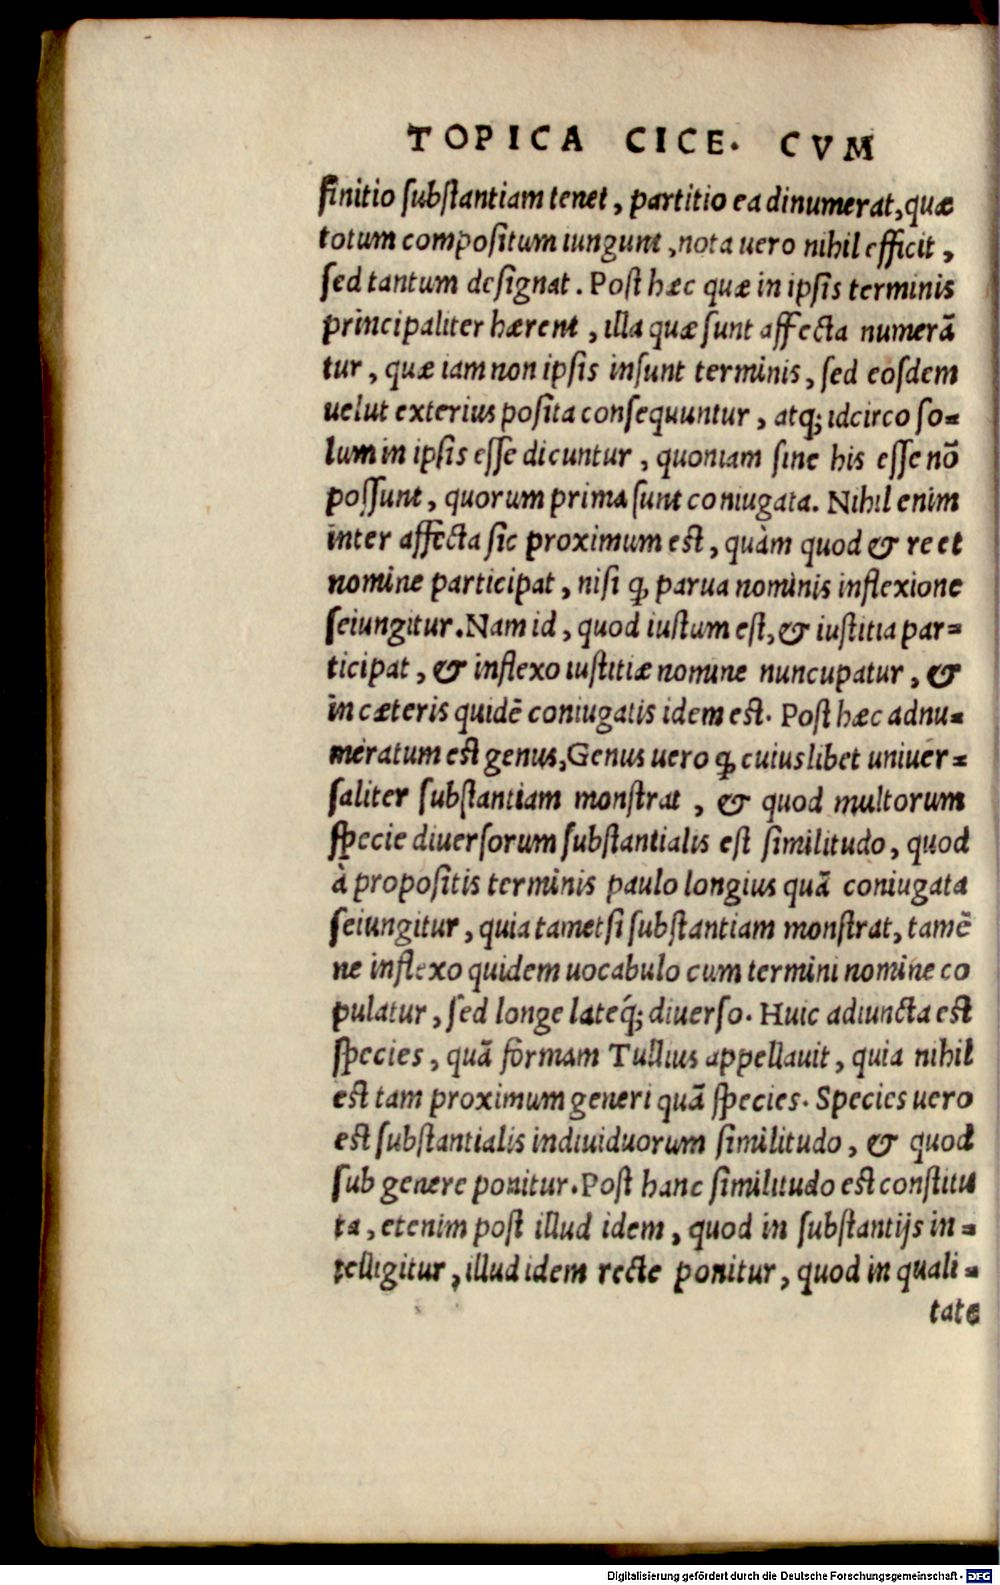 TOPICA CICE. CVM
finitio substantiam tenet, partitio ea dinumerat, quæ
totum compositum iungunt, nota uero nihil efficit,
sed tantum designat. Post hæc quæ in ipsis terminis
principaliter hærent, illa quæ sunt affecta numerã
tur, quæ iam non ipsis insunt terminis, sed eosdem
uelut exterius posita consequuntur, atq; idcirco so-
lum in ipsis esse dicuntur, quoniam sine his esse nõ
possunt, quorum prima sunt coniugata. Nihil enim
inter affecta sic proximum est, quàm quod & re et
nomine participat, nisi ꝙ parua nominis inflexione
seiungitur. Nam id, quod iustum est, & iustitia par-
ticipat, & inflexo iustitiæ nomine nuncupatur, &
in cæteris quidẽ coniugatis idem est. Post hæc adnu-
meratum est genus, Genus uero ꝙ cuiuslibet uniuer-
saliter substantiam monstrat, & quod multorum
specie diuersorum substantialis est similitudo, quod
à propositis terminis paulo longius quã coniugata
seiungitur, quia tametsi substantiam monstrat, tamẽ
ne inflexo quidem uocabulo cum termini nomine co
pulatur, sed longe lateq́; diuerso. Huic adiuncta est
species, quã formam Tullius appellauit, quia nihil
est tam proximum generi quã species. Species uero
est substantialis indiuiduorum similitudo, & quod
sub genere ponitur. Post hanc similitudo est constitu
ta, etenim post illud idem, quod in substantijs in-
telligitur, illud idem recte ponitur, quod in quali-
tate
Digitalisierung gefördert durch die Deutsche Forschungsgemeinschaft - DFG